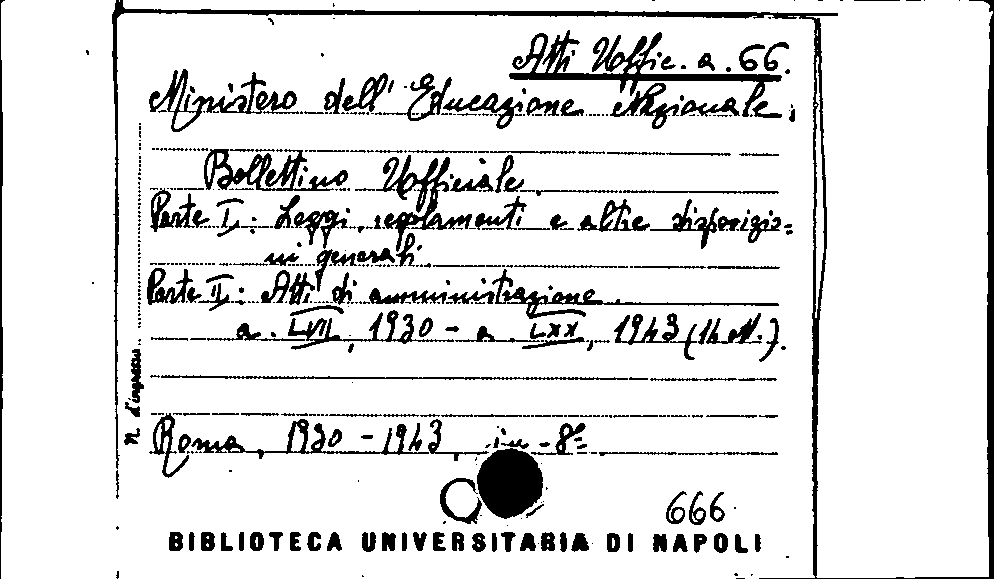 Atti Uffic. a. 66.
Ministero dell' Educazione Nazionale.
Bollettino Ufficiale.
Parte I: Leggi, regolamenti e altre disposizio=
ni generali.
Parte II: Atti di amministrazione.
a. LVII, 1930 - a. LXX, 1943 (1h N.).
N. d'ingresso
Roma, 1930 - 1943, in - 8º.
666
BIBLIOTECA UNIVERSITARIA DI NAPOLI